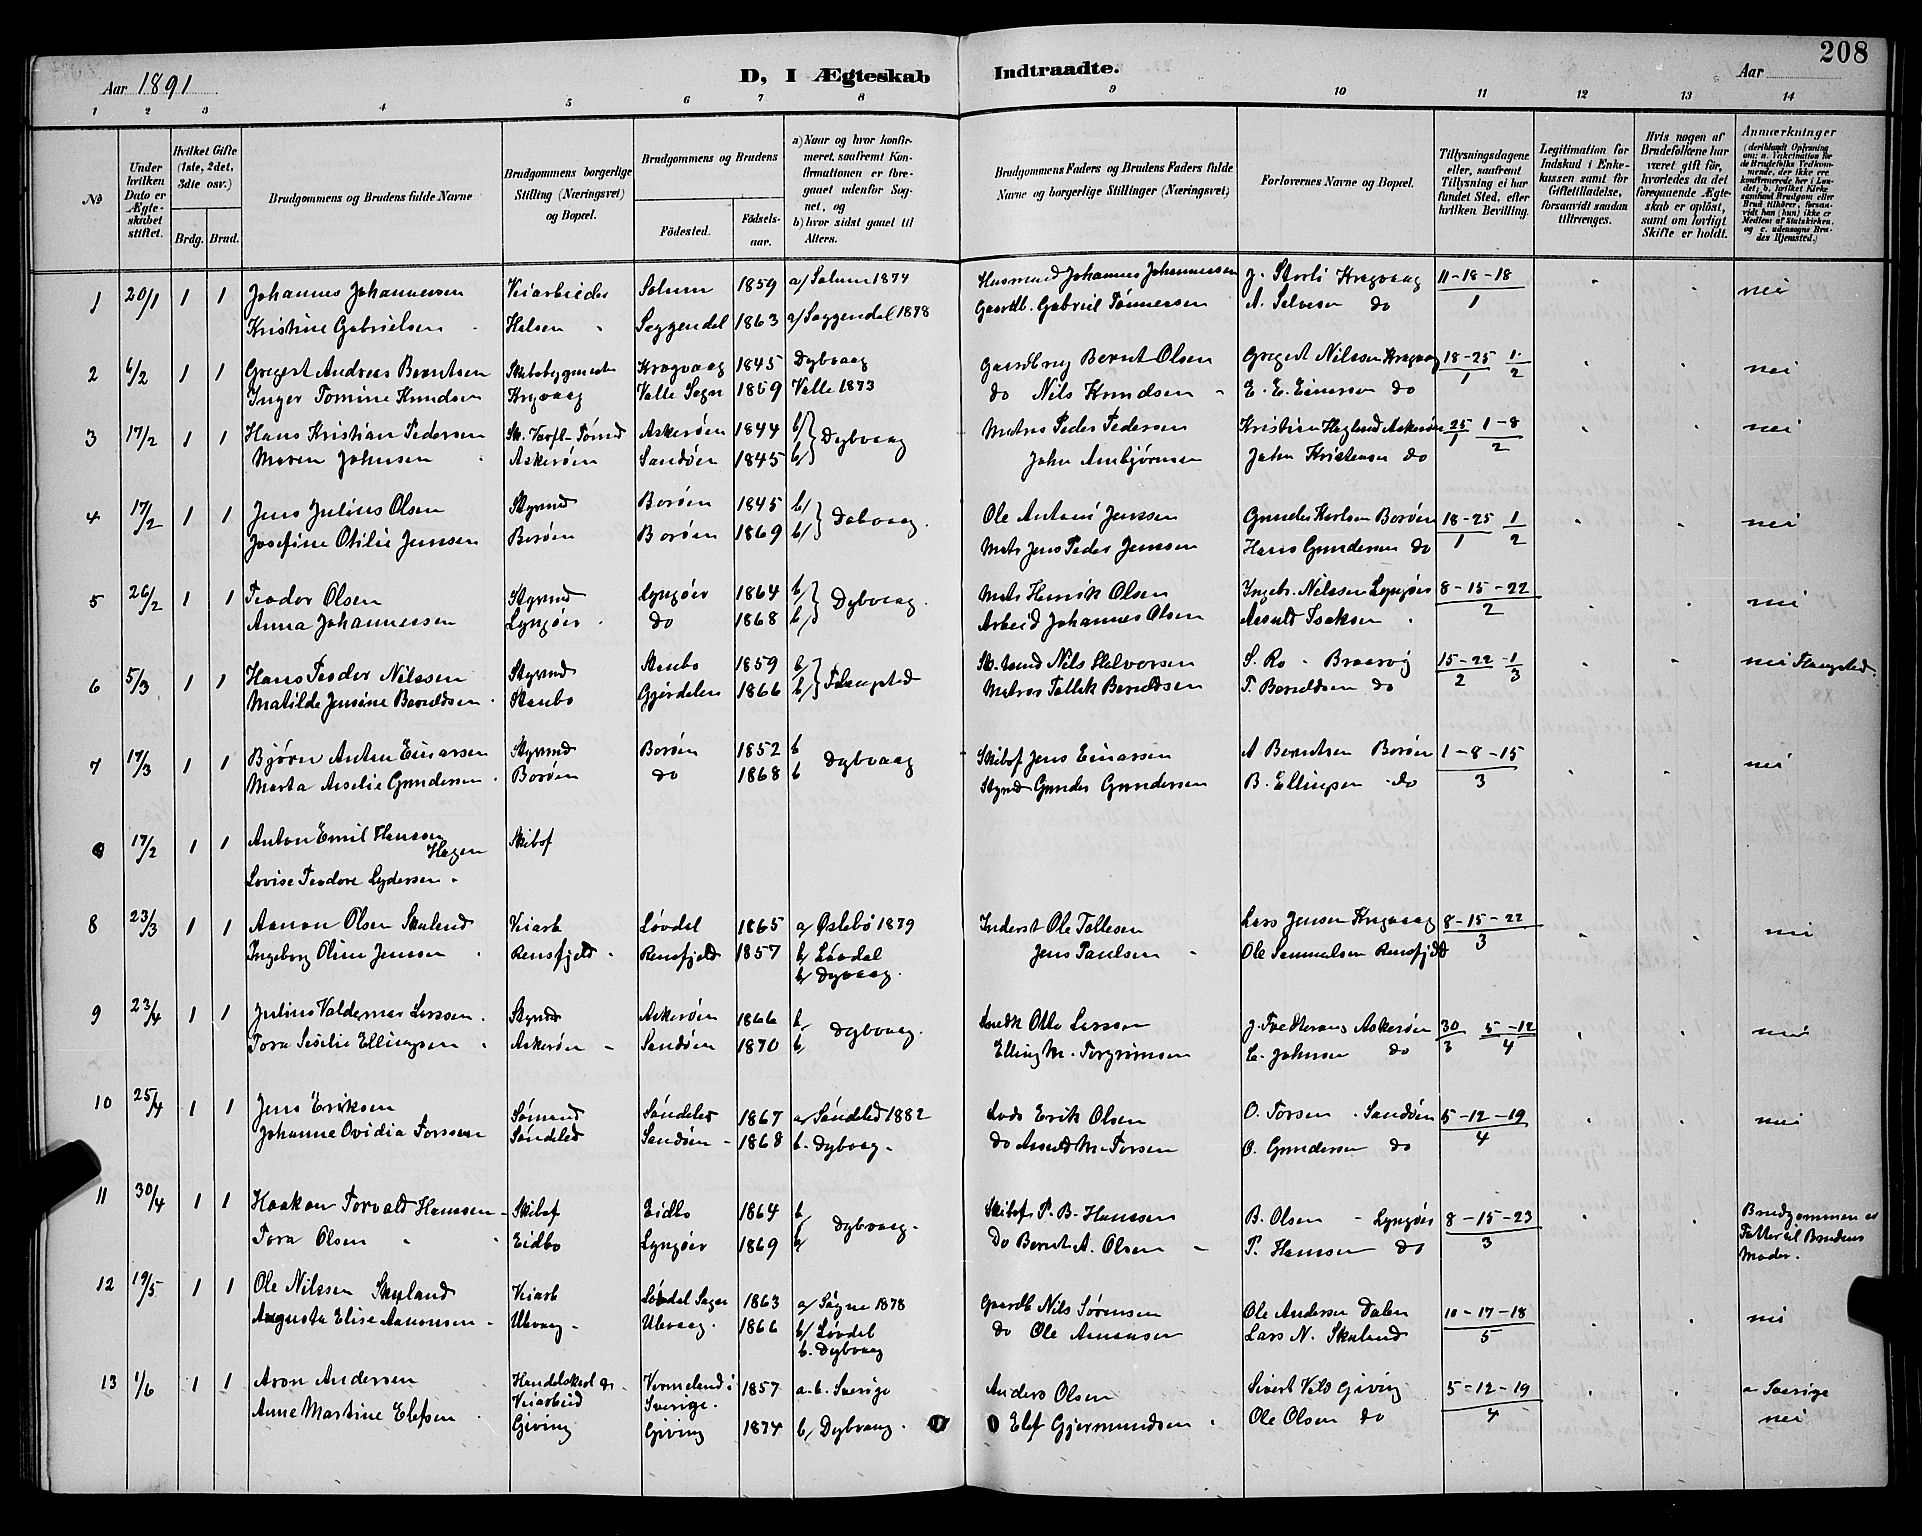 208
Aar 1891
D, I Ægteskab Indtraadte.
Aar
1 2 3 4 5 6 7 8 9 10 11 12 13 14
No
Under hvilken Dato er Ægteskabet stiftet.
Hvilket Gifte (1ste, 2det, 3die osv.)
Brdg. Brud.
Brudgommens og Brudens fulde Navne
Brudgommens borgerlige Stilling (Næringsvei) og Bopæl.
Brudgommens og Brudens
Födested. Födselsaar.
a) Naar og hvor konfirmeret, saafremt Konfirmationen er foregaaet udenfor Sognet, og
b) hvor sidst gaaet til Alters.
Brudgommens Faders og Brudens Faders fulde Navne og borgerlige Stillinger (Næringsvei)
Forlovernes Navne og Bopæl.
Tillysningsdagene eller, saafremt Tillysning ei har fundet Sted, efter hvilken Bevilling.
Legitimation for Indskud i Enkekassen samt for Giftetilladelse, forsaavidt saadan tiltrænges.
Hvis nogen af Brudefolkene har været gift för, hvorledes da det foregaaende Ægteskab er oplöst, samt om lovligt Skifte er holdt.
Anmærkninger (deriblandt Oplysning om: a. Vakcination for de Brudefolks Vedkommende, der ikke ere konfirmerede her i Landet; b. hvilket Kirkesamfund Brudgom eller Brud tilhörer, forsaavidt han (hun) ikke er Medlem af Statskirken, og c. udensogns Brudes Hjemsted.)
1 20/1 1 1 Johannes Johannessen Veiarbeider Solum 1859 a/ Solum 1874 Husmand Johannes Johannessen J. Storli Kragvaag 11-18-18/1 nei
Kristine Gabrielsen Helsen Soggendal 1863 a/ Soggendal 1878 Gaardb. Gabriel Tønnessen A. Selvesen do
2 6/2 1 1 Gregert Andreas Berntsen Skibsbygmester Kragvaag 1845 Dybvaag Gaardbrug Bernt Olsen Gregert Nilssen Kragvaag 18-25/1 1/2 nei
Inger Tomine Knudsen Kragvaag Valle Sogn 1859 Valle 1873 do Nils Knudsen E. E. Einersen do
3 17/2 1 1 Hans Kristian Pedersen Askerøen 1844 b/ Dybvaag Matros Peder Pedersen Kristian Haglund Askerøen 25/1 1-8/2 nei
Maren Johnsen Askerøen Sandøen 1845 b/ John Ambjørnsen John Kristensen do
4 17/2 1 1 Jens Julius Olsen Styrmd Borøen 1845 b/ Dobvaag. Ole Antoni Jenssen Gunder Karlsen Borøen 18-25/1 1/2 nei
Josefine Otilie Jenssen Borøen Borøen 1869 b/ Matr. Jens Peder Jenssen Hans Gundersen do
5 26/2 1 1 Teodor Olsen Styrmd Lyngøer 1864 b/ Dybvaag. Matr. Henrik Olsen Ingebr. Nilssen Lyngøer 8-15-22/2 nei
Anna Johannessen Lyngøer do 1868 b/ Arbeid Johannes Olsen Isaksen
6 5/3 1 1 Hans Teodor Nilssen Styrmd Stenbo 1859 b/ Flangsted Nils Halvorsen S. Ro - Braarvig 15-22/2 1/3 nei Flangsted.
Matilde Jensine Bervildsen Stenbo Gjørdalen 1866 b/ Matros Tallak Bervildsen T. Bervildsen do
7 17/3 1 1 Bjørn Anton Einarsen Styrmd Borøen 1852 b Dybvaag Skibsf Jens Einarsen A Berntsen Borøen 1-8-15/3 nei
Marta Aselie Gundersen Borøen do 1868 b Styrmd Gunder Gundersen B. Ellingsen do
17/2 1 1 Anton Emil Hanssen Hagen Skibsf
Lovise Teodore Lydersen
8 23/3 1 1 Aanon Olsen Skuland Veiarb Løvdal 1865 a/ Øslebø 1879 Inderst Ole Tallesen Lars Jensen Kragvaag 8-15-22/3 nei
Ingeborg Oline Jenssen Rensfjeld Rensfjeld 1857 b/ Løvdal Jens Paulsen Ole Samuelsen Rensfjeld
b/ Dybvaag.
9 23/4 1 1 Julius Valdemar Larssen. Styrmd Askerøen 1866 b Dybvaag. Otto Larssen J. Tvedterans Askerøen 30/3 5-12/4 nei
Tora Sesilie Ellingsen Askerøen Sandøen 1870 b Elling M. Torgrimsen L. Johnsen do
10 25/4 1 1 Jens Eriksen Sømand Søndeled 1867 a/ Søndled 1882 Lods Erik Olsen O. Torsen Sandøen 5-12-19/4 nei
Johanne Ovidia Torssen Søndled Sandøen 1868 b. Dybvaag. do M. Torsen O. Gundersen do
11 30/4 1 1 Haakon Torvald Hanssen Skibsf Eidbo 1864 b Dybvaag. Skibsf. P. B. Hanssen B. Olsen Lyngøer 8-15-23/3 Brudgommen er
Tora Olsen Eidbo Lyngøer 1869 b do Bernt A. Olsen P. Hanssen do Fætter til Brudens Moder.
12 19/5 1 1 Ole Nilssen Skuland Veiarb Løvdal Sogn 1863 a/ Søgne 1878 Gaardb Nils Sørensen Ole Andersen Dalen 10-17-18/5 nei
Augusta Elise Aanonsen Ulevaag Ulevaag. 1866 b/ Løvdal do Ole Aanonsen Lars N. Skuland
b. Dybvaag
13 1/6 1 1 Aron Andersen Handelskarl & Veiarbeid Vermeland i Sverige. 1857 a. b. Sverige Anders Olsen Sivert Giving 5-12-19/4 a Sverige
Anne Martine Elefsen Giving Giving 1874 b/ Dybvaag. Elef Gjermundsen Ole Olsen do nei